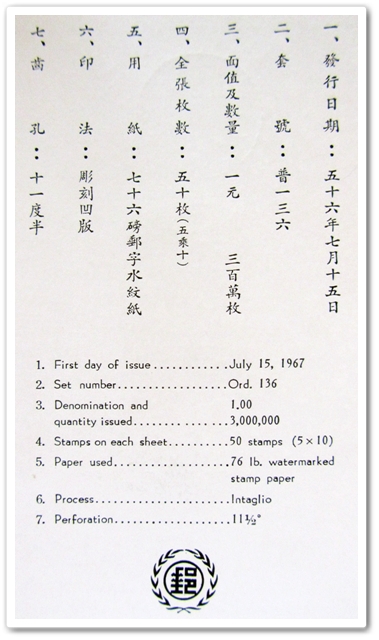 一、發行日期：五十六年七月十五日
二、套號：普一三六
三、面值及數量：一元 三百萬枚
四、全張枚數：五十枚（五乘十）
五、用紙：七十六磅郵字水紋紙
六、印法：彫刻凹版
七、齒孔：十一度半
1. First day of issue............July 15, 1967
2. Set number.................Ord. 136
3. Denomination and 1.00
quantity issued..............3,000,000
4. Stamps on each sheet.........50 stamps (5×10)
5. Paper used..................76 lb. watermarked
stamp paper
6. Process.....................Intaglio
7. Perforation..................11½°
郵